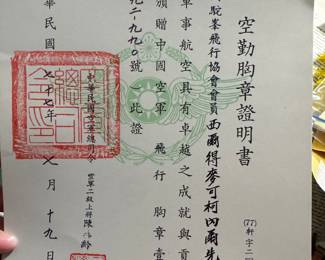 空勤胸章證明書
(77)軒字二
駝峯飛行協會會員西爾得麥可柯內爾先
軍事航空具有卓越之成就與貢
頒贈中國空軍飛行胸章壹
九二一九九〇號）此證
中華民國空軍總司令
空軍二級上將陳燊齡
華民國七十七年 月十九日